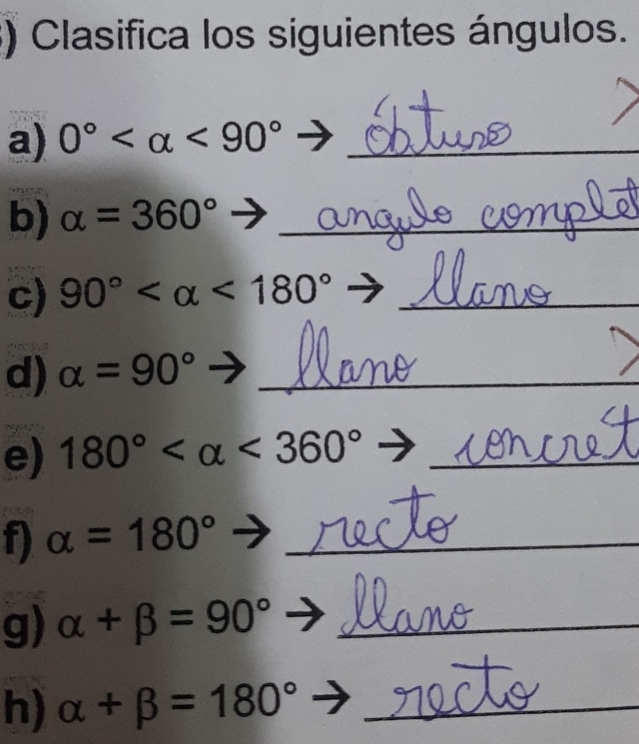 ) Clasifica los siguientes ángulos.
a) 0° < α < 90° → óbtuso
b) α = 360° → angulo complet
c) 90° < α < 180° → llano
d) α = 90° → llano
e) 180° < α < 360° → concret
f) α = 180° → recto
g) α + β = 90° → llano
h) α + β = 180° → recto